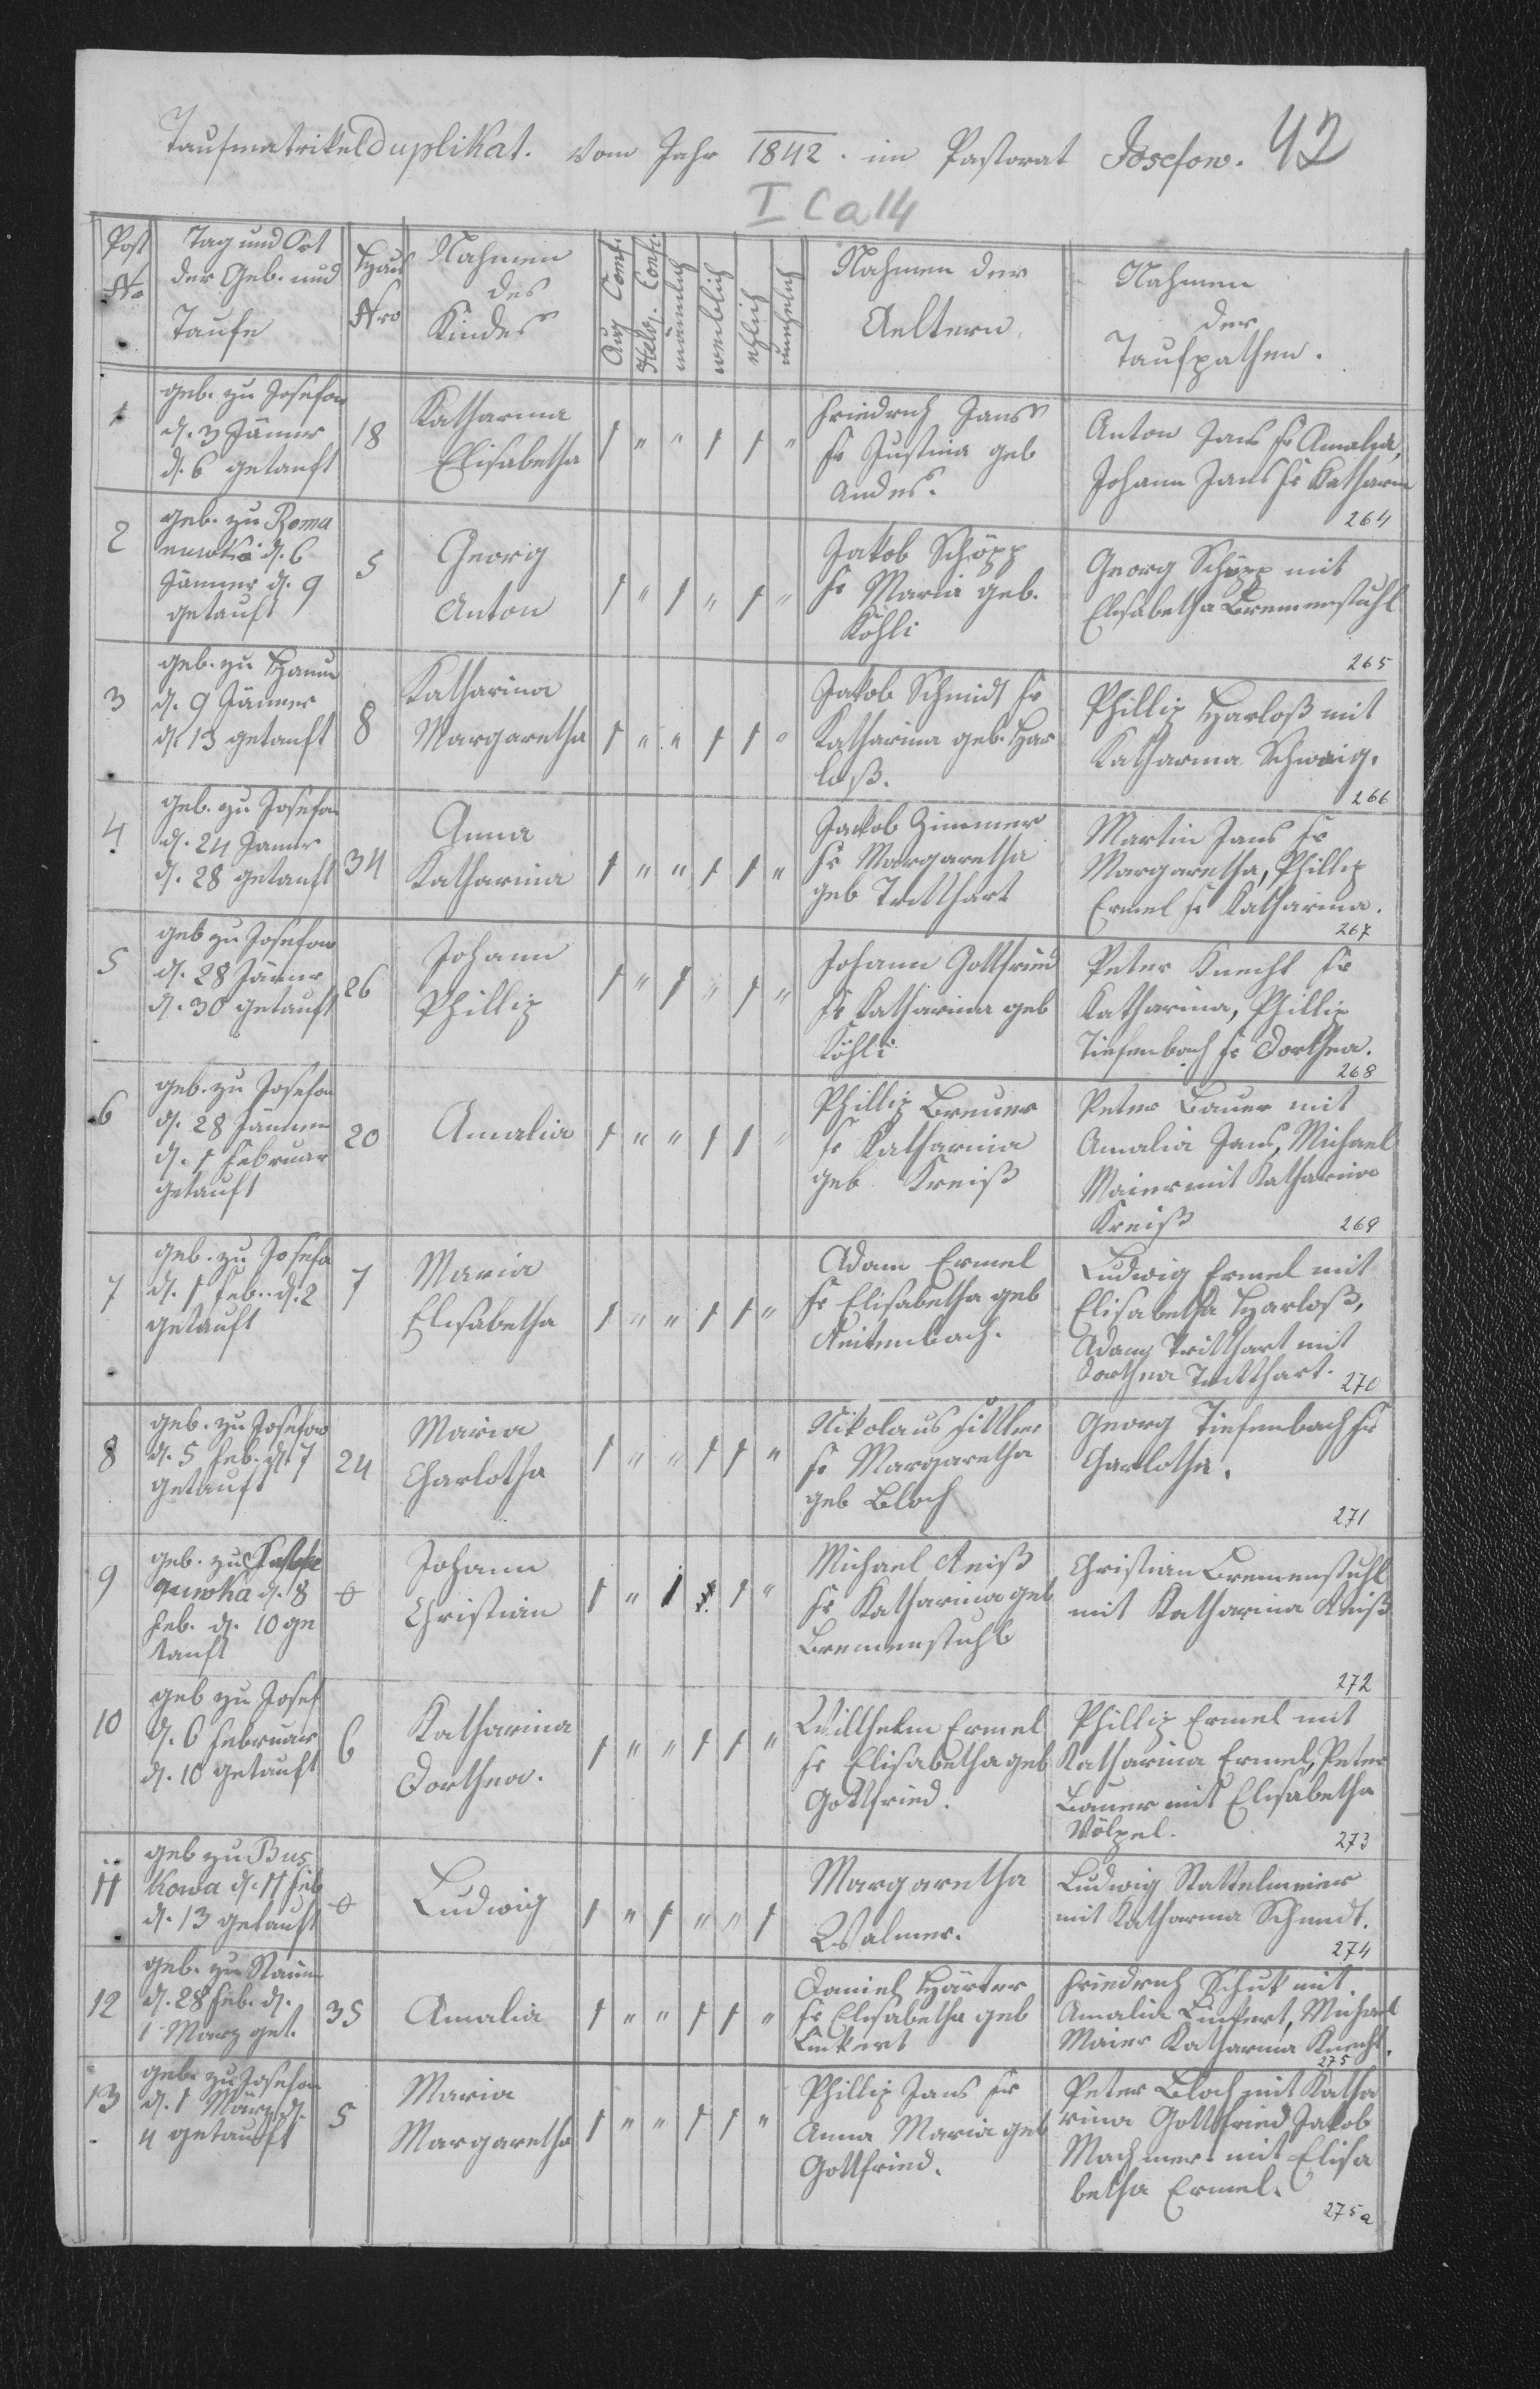 Taufmatrikel Duplikat. vom Jahr 1842. im Pastorat Josefow. 42
I C a 14
Post No
Tag und Ort der Geb. und Taufe
Haus Nro
Nahmen des Kindes
Aug. Conf.
Helv. Conf.
männlich
weiblich
ehlich
unehelich
Nahmen der Aeltern
Nahmen der Taufpathen.
1
geb. zu Josefow
d. 3 Jänner
d. 6 getauft
18
Katharina
Elisabetha
1 " " 1 1 "
Friedrich Jans
Justina geb
Andes.
Anton Jans Amalia,
Johann Jans Katharin
264
2
geb. zu Roma
nowka d. 6
Jänner d. 9
getauft
5
Georg
Anton
1 " 1 " 1 "
Jakob Schöpp
Maria geb.
Köhli
Georg Schöpp mit
Elisabetha Bremenstuhl
265
3
geb. zu Hanun
d. 9 Jänner
d. 13 getauft
8
Katharina
Margaretha
1 " " 1 1 "
Jakob Schmidt
Katharina geb. Har
loß.
Phillip Harloß mit
Katharina Schweig.
266
4
geb. zu Josefow
d. 24 Janner
d. 28 getauft
34
Anna
Katharina
1 " " 1 1 "
Jakob Zimmer
Margaretha
geb Tritthart
Martin Jans
Margaretha, Phillip
Ermel Katharina.
267
5
geb zu Josefow
d. 28 Jänner
d. 30 getauft
26
Johann
Phillip
1 " 1 " 1 "
Johann Gottfried
Katharina geb
Köhli
Peter Knecht
Katharina, Phillip
Tiefenbach Dorthea.
268
6
geb. zu Josefow
d. 28 Jänner
d. 1 Februar
getauft
20
Amalia
1 " " 1 1 "
Phillip Breuer
Katharina
geb Kreiß
Peter Bauer mit
Amalia Jans, Michael
Maier mit Katharina
Kreiß
269
7
geb. zu Josefo
d. 1 Feb. d. 2
getauft
7
Maria
Elisabetha
1 " " 1 1 "
Adam Ermel
Elisabetha geb
Reitenbach.
Ludwig Ermel mit
Elisabetha Harloß,
Adam Tritthart mit
Dorthea Tritthart.
270
8
geb. zu Josefow
d. 5 Feb. d. 7
getauft
24
Maria
Charlotha
1 " " 1 1 "
Nikolaus
Margaretha
geb Bloch
Georg Tiefenbach
Charlotha.
271
9
geb. zu
d. 8
Feb. d. 10 ge
tauft
Johann
Christian
1 " 1 1 "
Michael Reiß
Katharina geb
Bremenstuhl
Christian Bremenstuhl
mit Katharina Reiß
272
10
geb zu Josef
d. 6 Februar
d. 10 getauft
6
Katharina
Dorthea.
1 " " 1 1 "
Willhelm Ermel
Elisabetha geb
Gottfried.
Phillip Ermel mit
Katharina Ermel, Peter
Bauer mit Elisabetha
Völpel.
273
11
geb zu Bus
kowa d. 11 Feb
d. 13 getauft
Ludwig
1 " 1 " " 1
Margaretha
Walmer.
Ludwig Rattelmeier
mit Katharina Schmidt.
274
12
geb. zu
d. 28 Feb. d.
1 Marz get.
35
Amalia
1 " " 1 1 "
Daniel Härter
Elisabetha geb
Linkert
Friedrich Schuk mit
Amalia Linkert, Michael
Maier Katharina Knecht.
275
13
geb. zu Josefow
d. 1 März d.
4 getauft
5
Maria
Margaretha
1 " " 1 1 "
Phillip Jans
Anna Maria geb
Gottfried.
Peter Bloch mit Katha
rina Gottfried Jakob
Machmer mit Elisa
betha Ermel.
275a